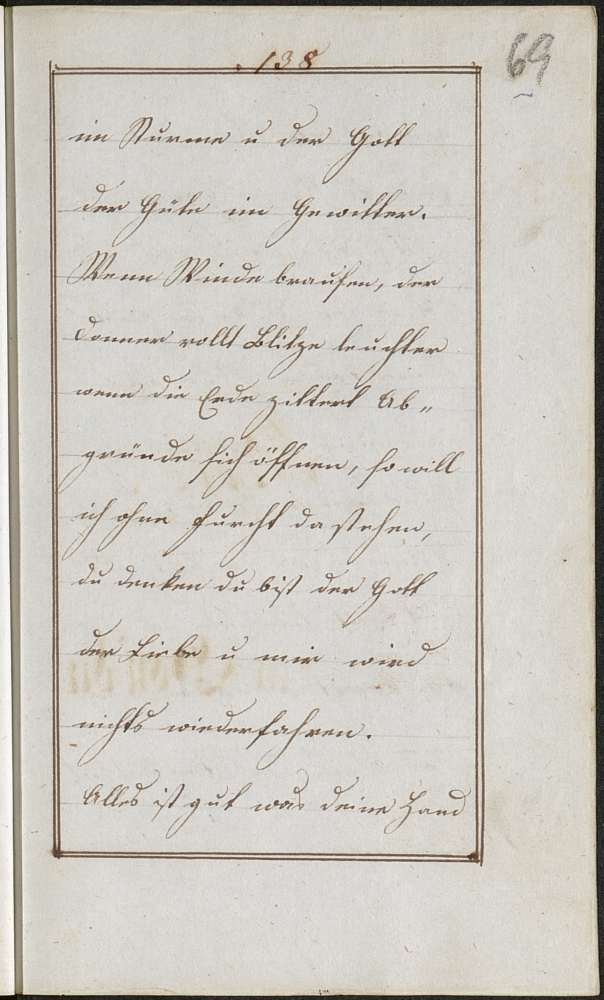 138
69
im Sturme u der Gott
der Güte im Gewitter.
Wenn Winde brausen, der
Donner rollt Blitze leuchten
wenn die Erde zittert Ab„
gründe sich öffnen, so will
ich ohne Furcht da stehen,
du denken du bist der Gott
der Liebe u mir wird
nichts wiederfahren.
Alles ist gut was deine Hand